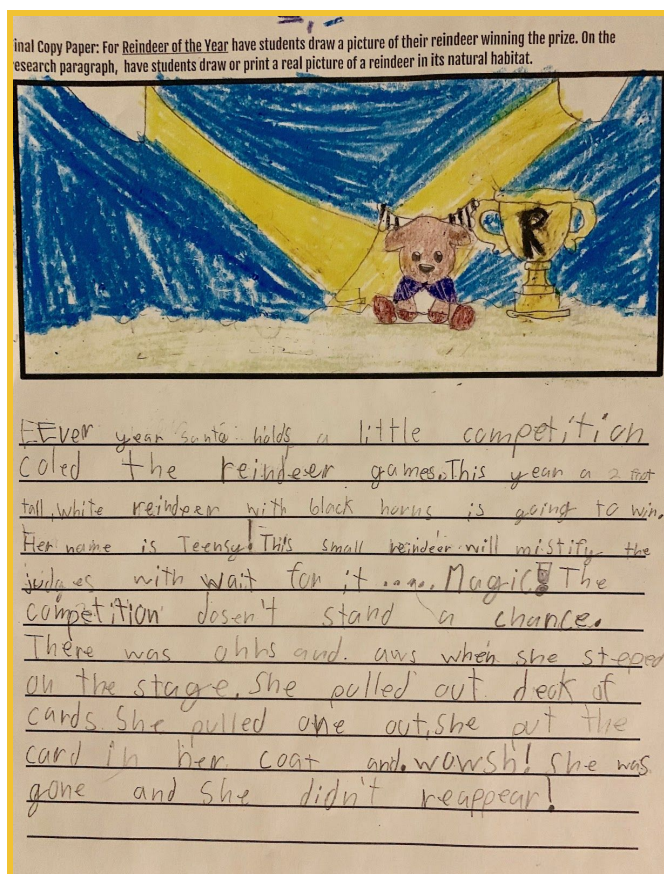 inal Copy Paper: For Reindeer of the Year have students draw a picture of their reindeer winning the prize. On the
esearch paragraph, have students draw or print a real picture of a reindeer in its natural habitat.
R
EEver year santa holds a little competition
coled the reindeer games. This year a 2 foot
tall, white reindeer with black horns is going to win.
Her name is Teensy! This small reindeer will mistify the
judges with wait for it ..... Magic! The
competition dosen't stand a chance.
There was ohhs and. aws when she steped
on the stage. She pulled out deck of
cards. She pulled one out, she put the
card in her coat and. wowsh! She was
gone and she didn't reappear!